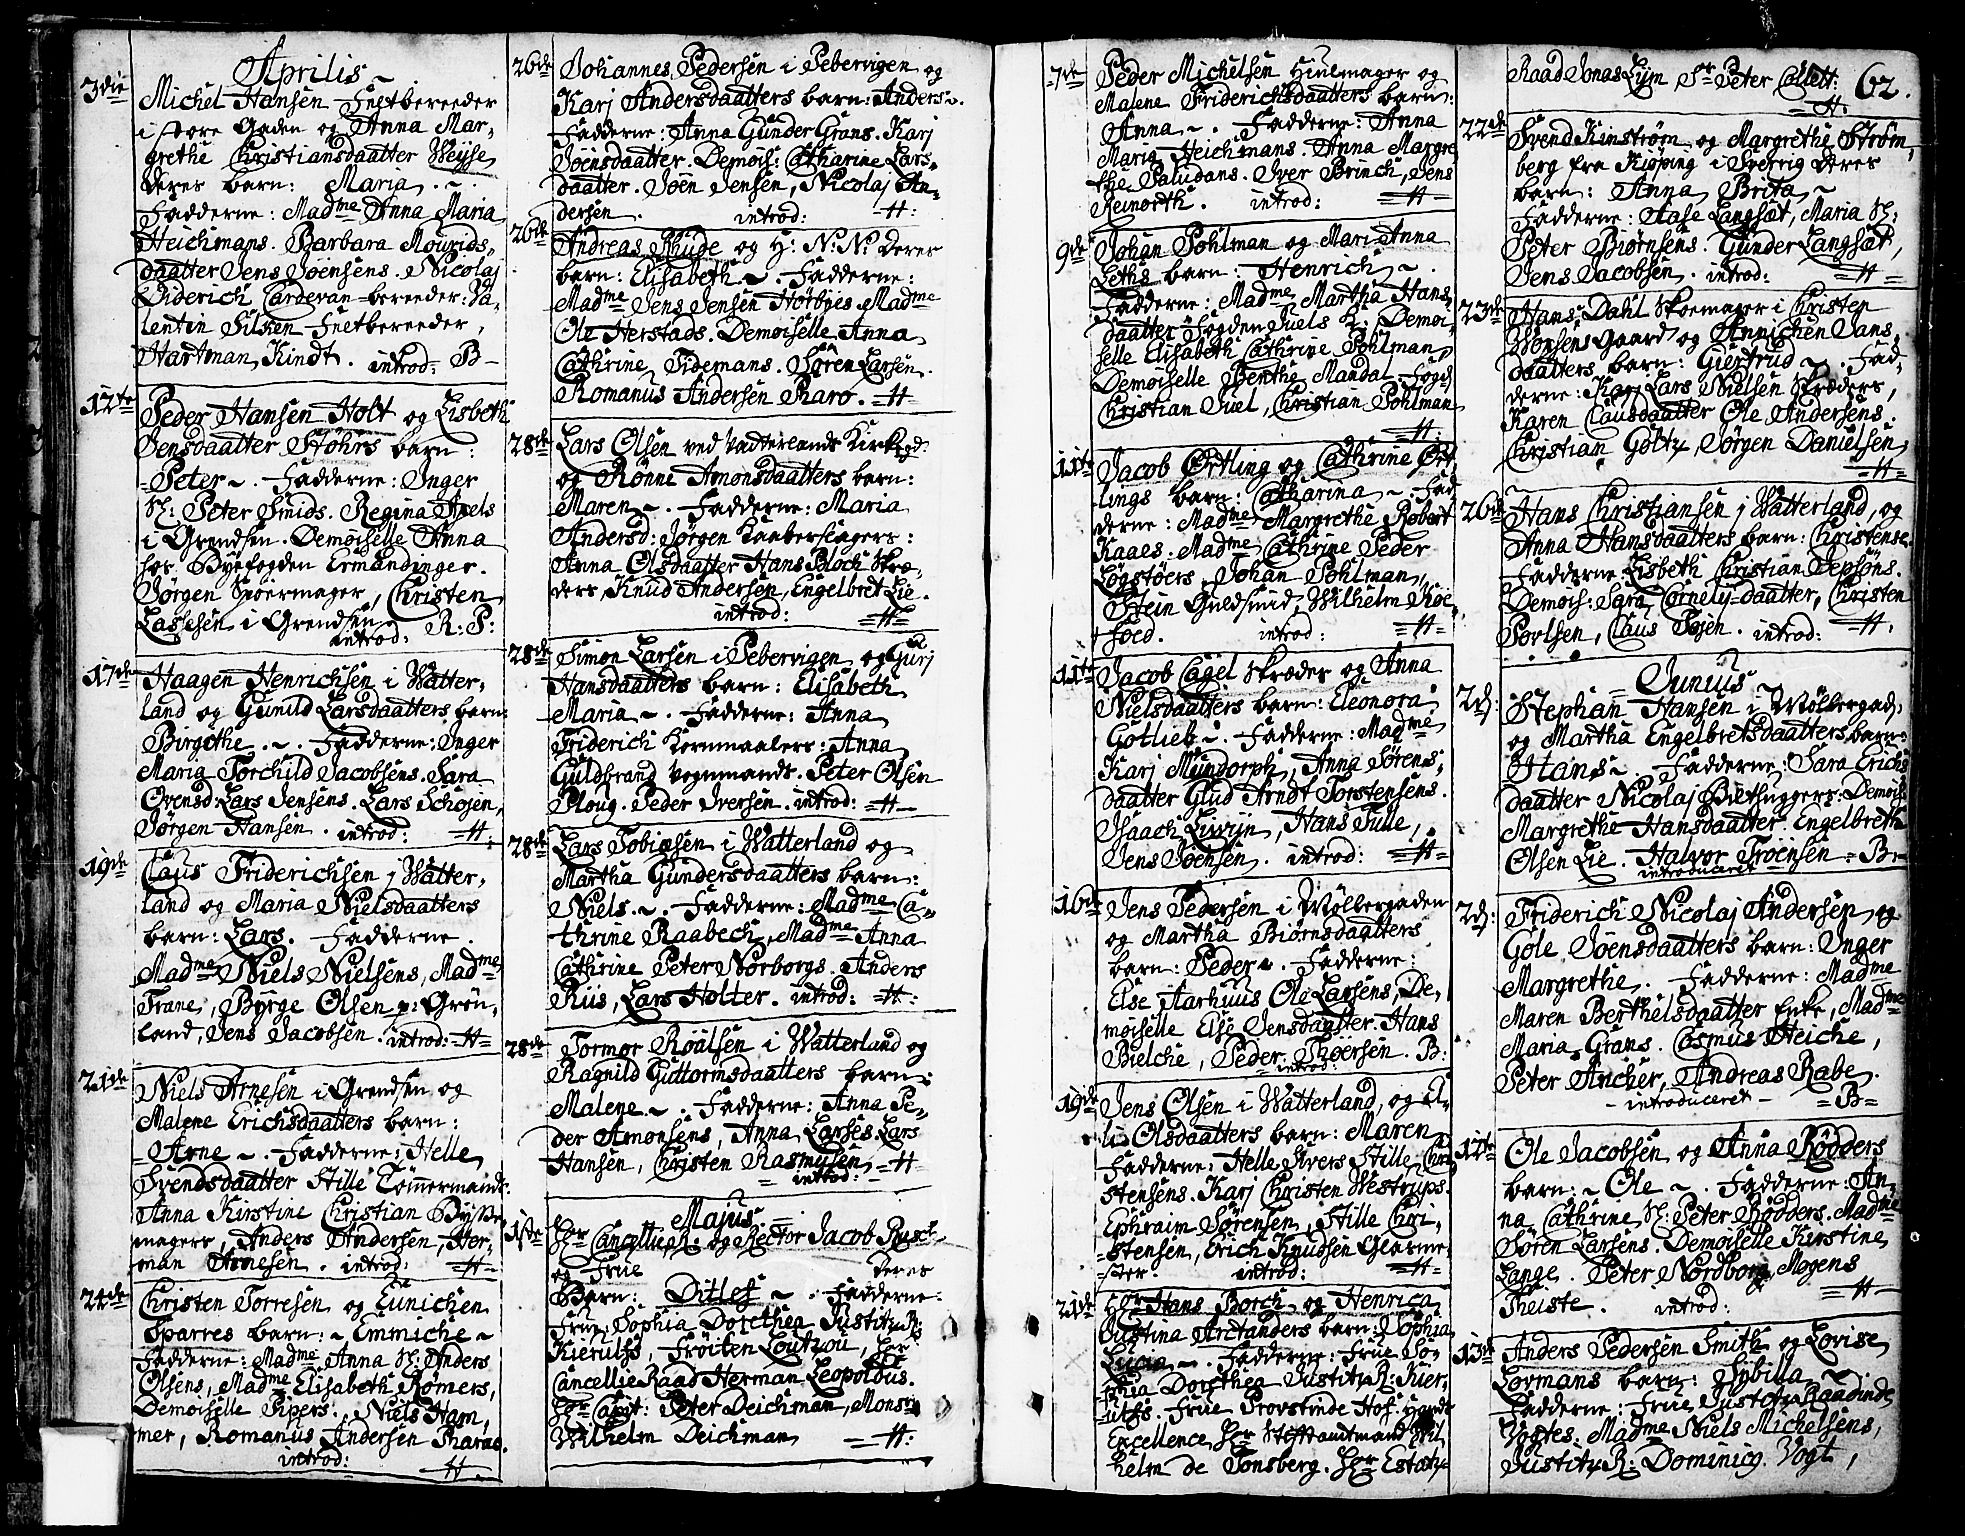 Aprilis
3die
Michel Hansen Feltbereeder
i store Gaden og Anna Mar-
grethe Christiansdaatter Weyse
deres barn: Maria.
Fadderne: Madme Anna Maria
Heichmans. Barbara Mourids-
daatter Jens Joensens. Nicolaj
Diderich Cardevan-bereeder. Va-
lentin Filken Feltbereeder,
Hartman Kindt. introd: B-
12te
Peder Hansen Holt og Lisbeth
Jensdaatter Støhrs barn:
Peter. Fadderne: Inger
Sl: Peter Smids. Regina Axels
i Grendsen. Demoiselle Anna
hos Byefogden Ermandinger.
Jørgen Spoermager, Christen
Lassesen i Grendsen
introd: R: P:
17de
Haagen Henrichsen i Watter-
land og Gunild Larsdaatters barn:
Birgethe. Fadderne: Inger
Maria Torchild Jacobsens. Sara
Ovensd: Lars Jensens. Lars Schøjen,
Jørgen Hansen. introd: =H=
19de
Claus Friderichsen i Watter-
land og Maria Nielsdaatters
barn: Lars. Fadderne.
Madme Niels Nielsens, Madme
Trane, Byrge Olsen p: Grøn-
land, Jens Jacobsen. introd: =H=
21de
Niels Arnesen i Grendsen og
Malene Erichsdaatters barn:
Arne. Fadderne: Helle
Svendsdaatter Stille Tømmermands.
Anna Kirstine Christian Bysse
magers, Anders Andersen, Her-
man Arnesen. introd: =H=
24de
Christen Torresen og Eunichen
Sparres barn: Emmiche
Fadderne: Madme Anna Sl: Anders
Olsens, Madme Elisabeth Rømers,
Demoiselle Pipers. Niels Ham,
mer, Romanus Andersen Pharao.
introd: H-
26de
Johannes Pedersen i Pebervigen og
Karj Andersdaatters barn: Anders.
Fadderne: Anna Gunder Grans. Karj
Joensdaatter. Demois: Catharine Lars-
daatter. Joen Jensen, Nicolaj An-
dersen. introd: H:
26de
Andreas Rhude og H: N: N: deres
barn: Elisabeth. Fadderne:
Madme Jens Jensen Hørbyes. Madme
Ole Herstads. Demoiselle Anna
Cathrine Tidemans. Søren Larsen.
Romanus Andersen Raro. =H
28de
Lars Olsen ved Vatterlands Kirkegd:
og Rønne Amonsdaatters barn:
Maren. Fadderne: Maria
Andersd: Jørgen Kaaberslagers:
Anna Olsdaatter Hans Bloch Skræ-
ders, Knud Andersen, Engelbret Lie.
introd: =H=
28de
Simon Larsen i Pebervigen og Gurj
Hansdaatters barn: Elisabeth
Maria. Fadderne: Anna
Friderich Kornmaalers: Anna
Guldbrand Vognmands. Peter Olsen
Ploug. Peder Iversen. introd: =H-
28de
Lars Tobiæsen i Watterland og
Martha Gundersdaatters barn:
Niels. Fadderne: Madme Ca-
thrine Raabech, Madme Anna
Cathrine Peter Norborgs. Anders
Riis, Lars Holter. introd: =H:
28de
Tormor Røälsen i Watterland og
Ragnild Guttormsdaatters barn:
Malene. Fadderne: Anna Pe-
der Amonsens, Anna Larses. Lars
Hansen, Christen Rasmusen, =H
introd:
Majus
1ste
Hr Cancellie R: og Rector Jacob Rust
og Frue deres
Barn: Ditlef. Fadderne:
Frue Sophia Dorethea Justity R:
Kierulfs, Frøiken Loutzou, Hr
Cancellie Raad Herman Leopoldus.
Hr Capit: Peter Deichman, Monsr
Wilhelm Deichman =H:
7de
Peder Michelsen Hiulmager og
Malene Friderichsdaatters barn:
Anna. Fadderne: Anna
Maria Heichmans. Anna Margre
the Paludans. Iver Brinch, Jens
Reinorth. introd: =H=
9de
Johan Pohlman og Mari Anna
Leths barn: Henrich.
Fadderne: Madme Martha Hans
daatter Fogden Juels K: Demoi
selle Elisabeth Cathrine Pohlman,
Demoiselle Berthe Mandal. Foged
Christian Juel, Christian Pohlman
=H:
11te
Jacob Ørtling og Cathrine Ørt-
lings barn: Catharina. Fad
derne: Madme Margrethe Robert
Kaaes. Madme Cathrine Peder
Løgstøers. Johan Pohlman,
Stein Guldsmid, Wilhelm Roe-
foed. introd: =H=
11te
Jacob Cagel Skræder og Anna
Nielsdaatters barn: Eleonora
Gotlieb. Fadderne: Madme
Karj Mundorph, Anna Sørens-
daatter Glud Arndt Torstensens.
Isaach Liwijn, Hans Tulle,
Jens Joensen. introd: =H=
16de
Jens Pedersen i Møllergaden
og Martha Biørnsdaatters
barn: Peder. Fadderne:
Else Aarhuus Ole Larsens, De-
moiselle Else Jensdaatter. Hans
Bielche, Peder Thøersen. B:
introd:
19de
Jens Olsen i Watterland, og El-
li Olsdaatters barn: Maren
Fadderne: Helle Ivers Stille Chri
stensens. Karj Christen Westrups.
Ephraim Sørensen, Stille Chri-
stensen, Erich Knudsen Glarme-
ster. introd: =H=
21de
Hr Hans Borch og Henrica
Justina Arctanders barn: Sophia
Lucia. Fadderne: Frue So-
phia Dorethea Justity R: Kier-
ulfs. Frue Provstinde Hof. Hands
Excellence Hr Stiftamtmand Wil
helm de Tonsberg. Hr Estats-
62.
Raad Jonas Lym Sr Peter Collett:
=H.
22de
Svend Kinstrøm og Margrethe Strøm-
berg fra Kiøping i Sverrig deres
barn: Anna Brita
Fadderne: Aase Langsæt, Maria Sl:
Peter Biørnsens. Gunder Langsæt,
Jens Jacobsen. introd: =H=
23de
Hans Dahl Skoemager i Christen
Worsens gaard og Annichen Jans
daatters barn: Giertrud. Fad-
derne: Karj Lars Nielsen Skræders,
Karen Clausdaatter Ole Andersens.
Christian Goltz, Jørgen Danielsen,
=H=
26de
Hans Christiansen i Watterland, og
Anna Hansdaatters barn: Christense
Fadderne: Lisbeth Christian Jepsøns.
Demois: Sara Cornely-daatter, Christen
Povlsen, Claus Tojen. introd: =H.
Junius
2d:
Stephan Hansen i Møllergad:
og Martha Engelbretsdaatters barn:
Hans. Fadderne: Sara Erichs
daatter Nicolaj Bilthuggers: Demois:
Margrethe Hansdaatter. Engelbreth
Olsen Lie. Halvor Troensen =B=
introduceret
2d:
Friderich Nicolaj Andersen og
Gøle Joensdaatters barn: Inger
Margrethe. Fadderne: Madme
Maren Berthelsdaatter Enke, Madme
Maria Grans. Casmus Heiche,
Peter Ancher, Andreas Rabe.
introduceret =B=
12te
Ole Jacobsen og Anna Rødders
barn: Ole. Fadderne: An-
na Cathrine Sl: Peter Rødders. Madme
Søren Larsens. Demoiselle Kirstine
Lange. Peter Nordborg, Mogens
Theiste. introd: =H=
13de
Anders Pedersen Smith og Lovise
Lovmans barn: Sybilla
Fadderne: Frue Justity Raadinde
Vogtes: Madme Niels Michelsens,
Justity R: Dominicq. Vogt,